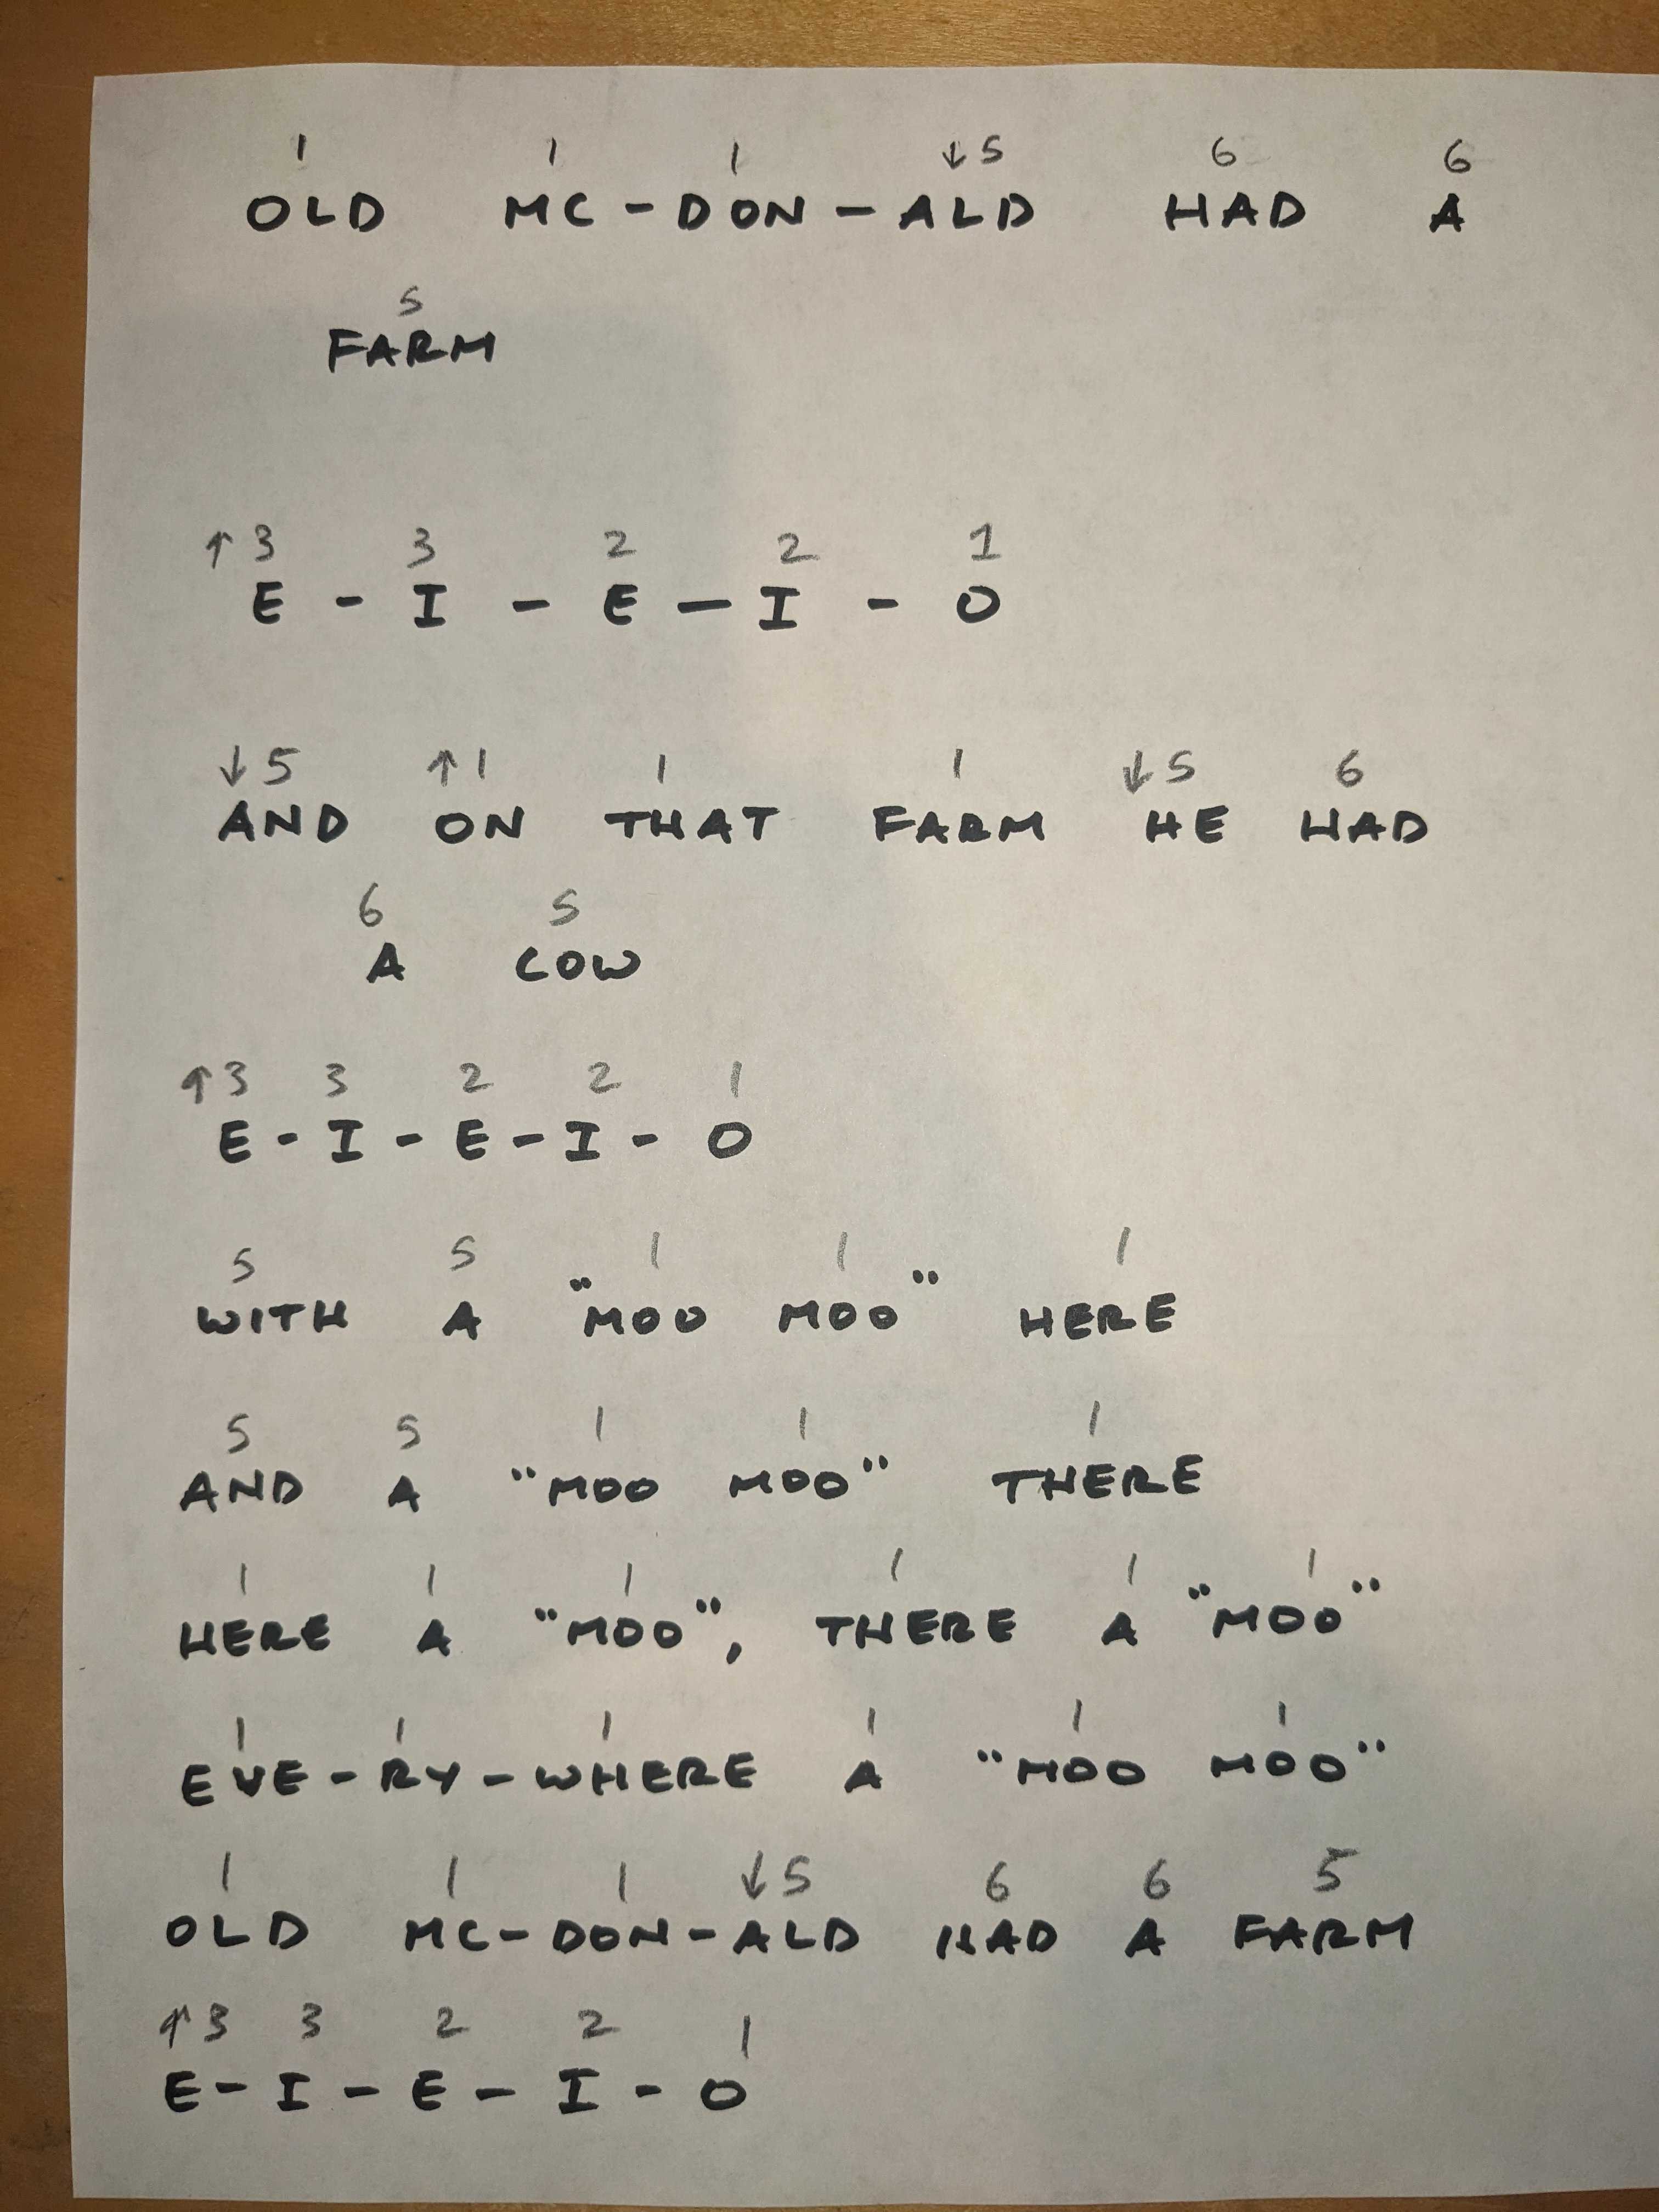 1 1 1 ↓5 6 6
OLD MC-DON-ALD HAD A
5
FARM
↑3 3 2 2 1
E-I-E-I-O
↓5 ↑1 1 1 ↓5 6
AND ON THAT FARM HE HAD
6 5
A COW
↑3 3 2 2 1
E-I-E-I-O
5 5 1 1 1
WITH A "MOO MOO" HERE
5 5 1 1 1
AND A "MOO MOO" THERE
1 1 1 1 1 1
HERE A "MOO", THERE A "MOO"
1 1 1 1 1 1
EVE-RY-WHERE A "MOO MOO"
1 1 1 ↓5 6 6 5
OLD MC-DON-ALD HAD A FARM
↑3 3 2 2 1
E-I-E-I-O